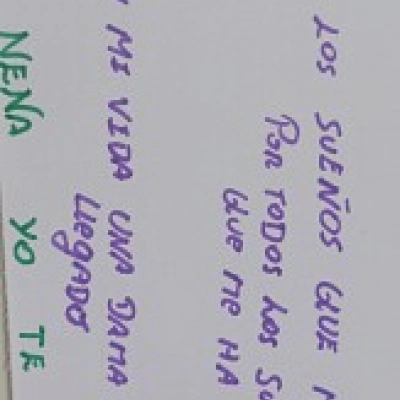 LOS SUEÑOS QUE
POR TODOS LOS
QUE ME HA
MI VIDA UNA DAMA
LLEGADO
NENA YO TE